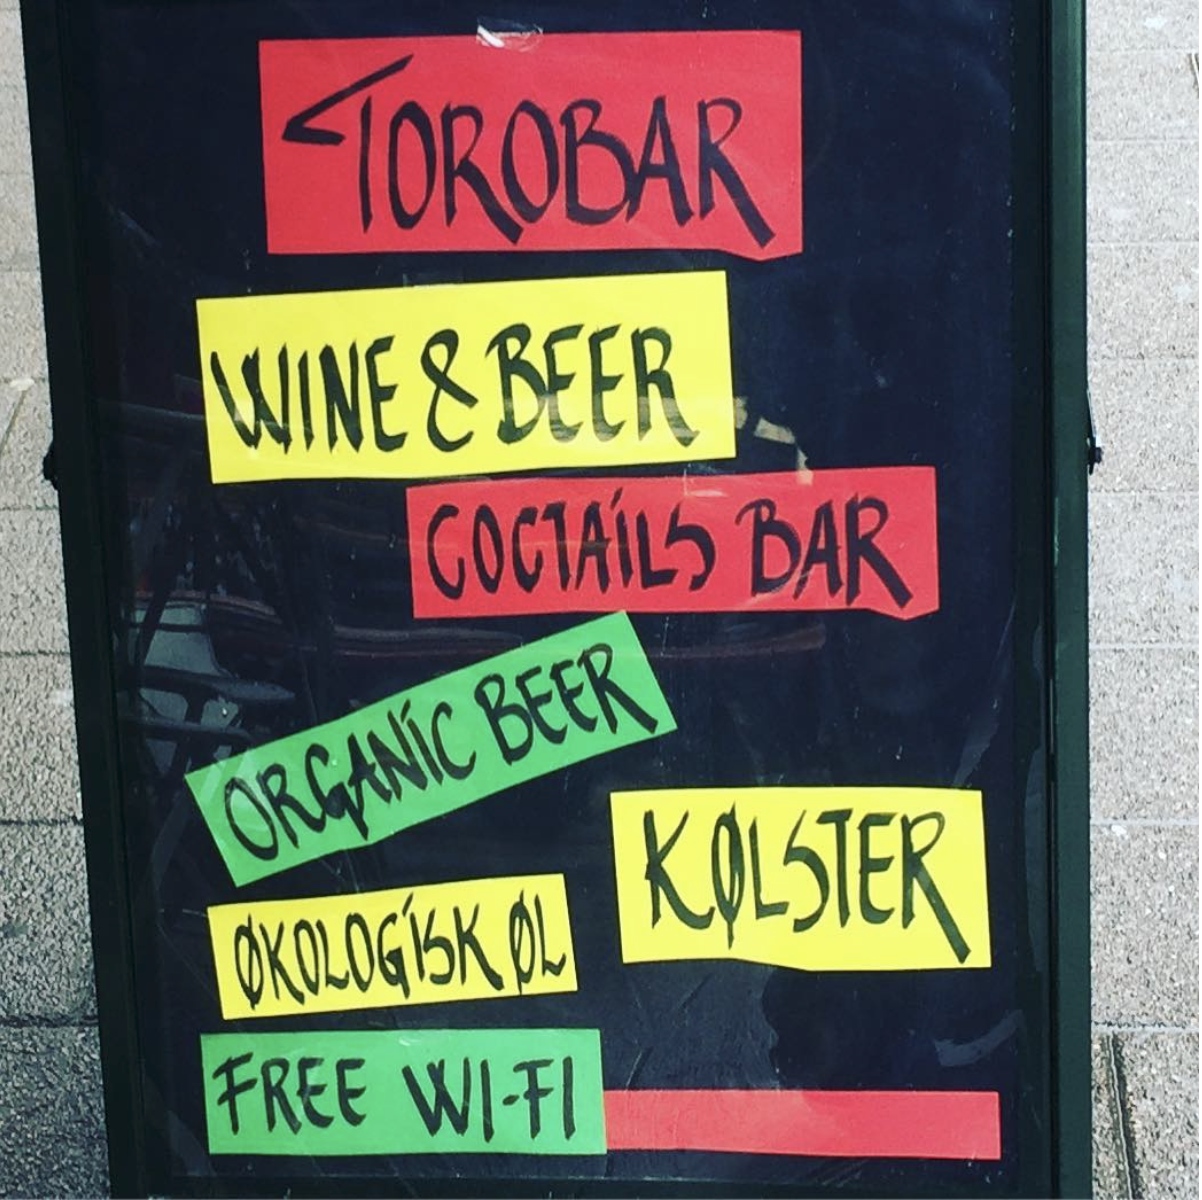 TOROBAR
WINE & BEER
COCTAILS BAR
ORGANIC BEER
KØLSTER
ØKOLOGISK ØL
FREE WI-FI